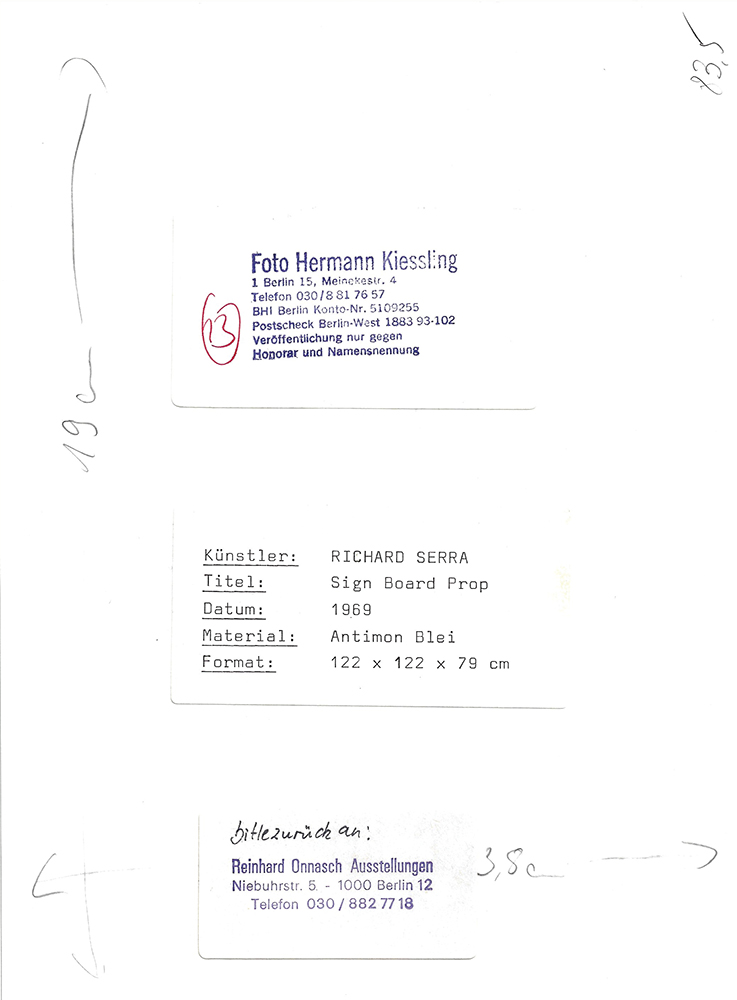 83,5
19 cm
Foto Hermann Kiessling
1 Berlin 15, Meinekestr. 4
Telefon 030/8 81 76 57
BHI Berlin Konto-Nr. 5109255
Postscheck Berlin-West 1883 93-102
Veröffentlichung nur gegen
Honorar und Namensnennung
13
Künstler: RICHARD SERRA
Titel: Sign Board Prop
Datum: 1969
Material: Antimon Blei
Format: 122 x 122 x 79 cm
bitte zurück an:
Reinhard Onnasch Ausstellungen
Niebuhrstr. 5 - 1000 Berlin 12
Telefon 030 / 882 77 18
3,8 cm